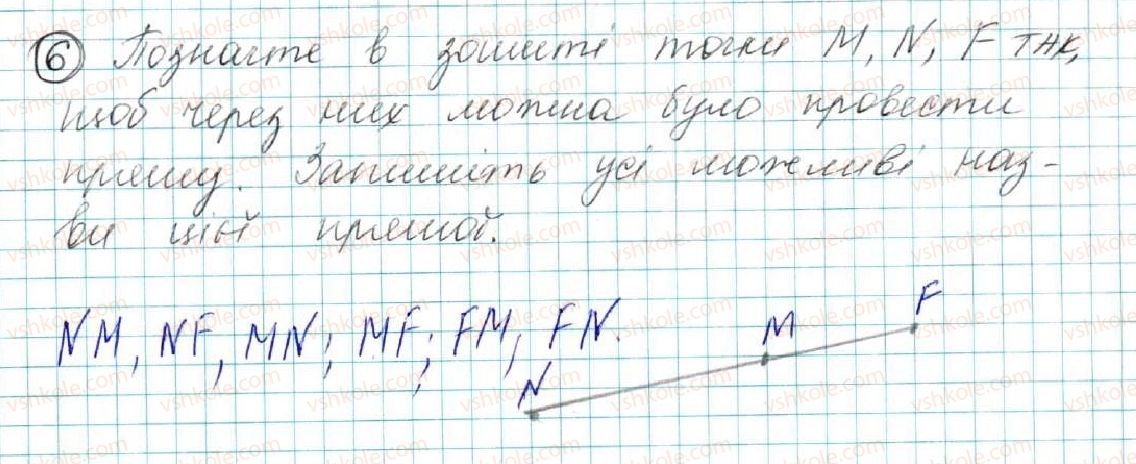 6 Позначте в зошиті точки M, N, F так,
щоб через них можна було провести
пряму. Запишіть усі можливі наз-
ви цієї прямої.
NM, NF, MN; MF; FM, FN.
N M F